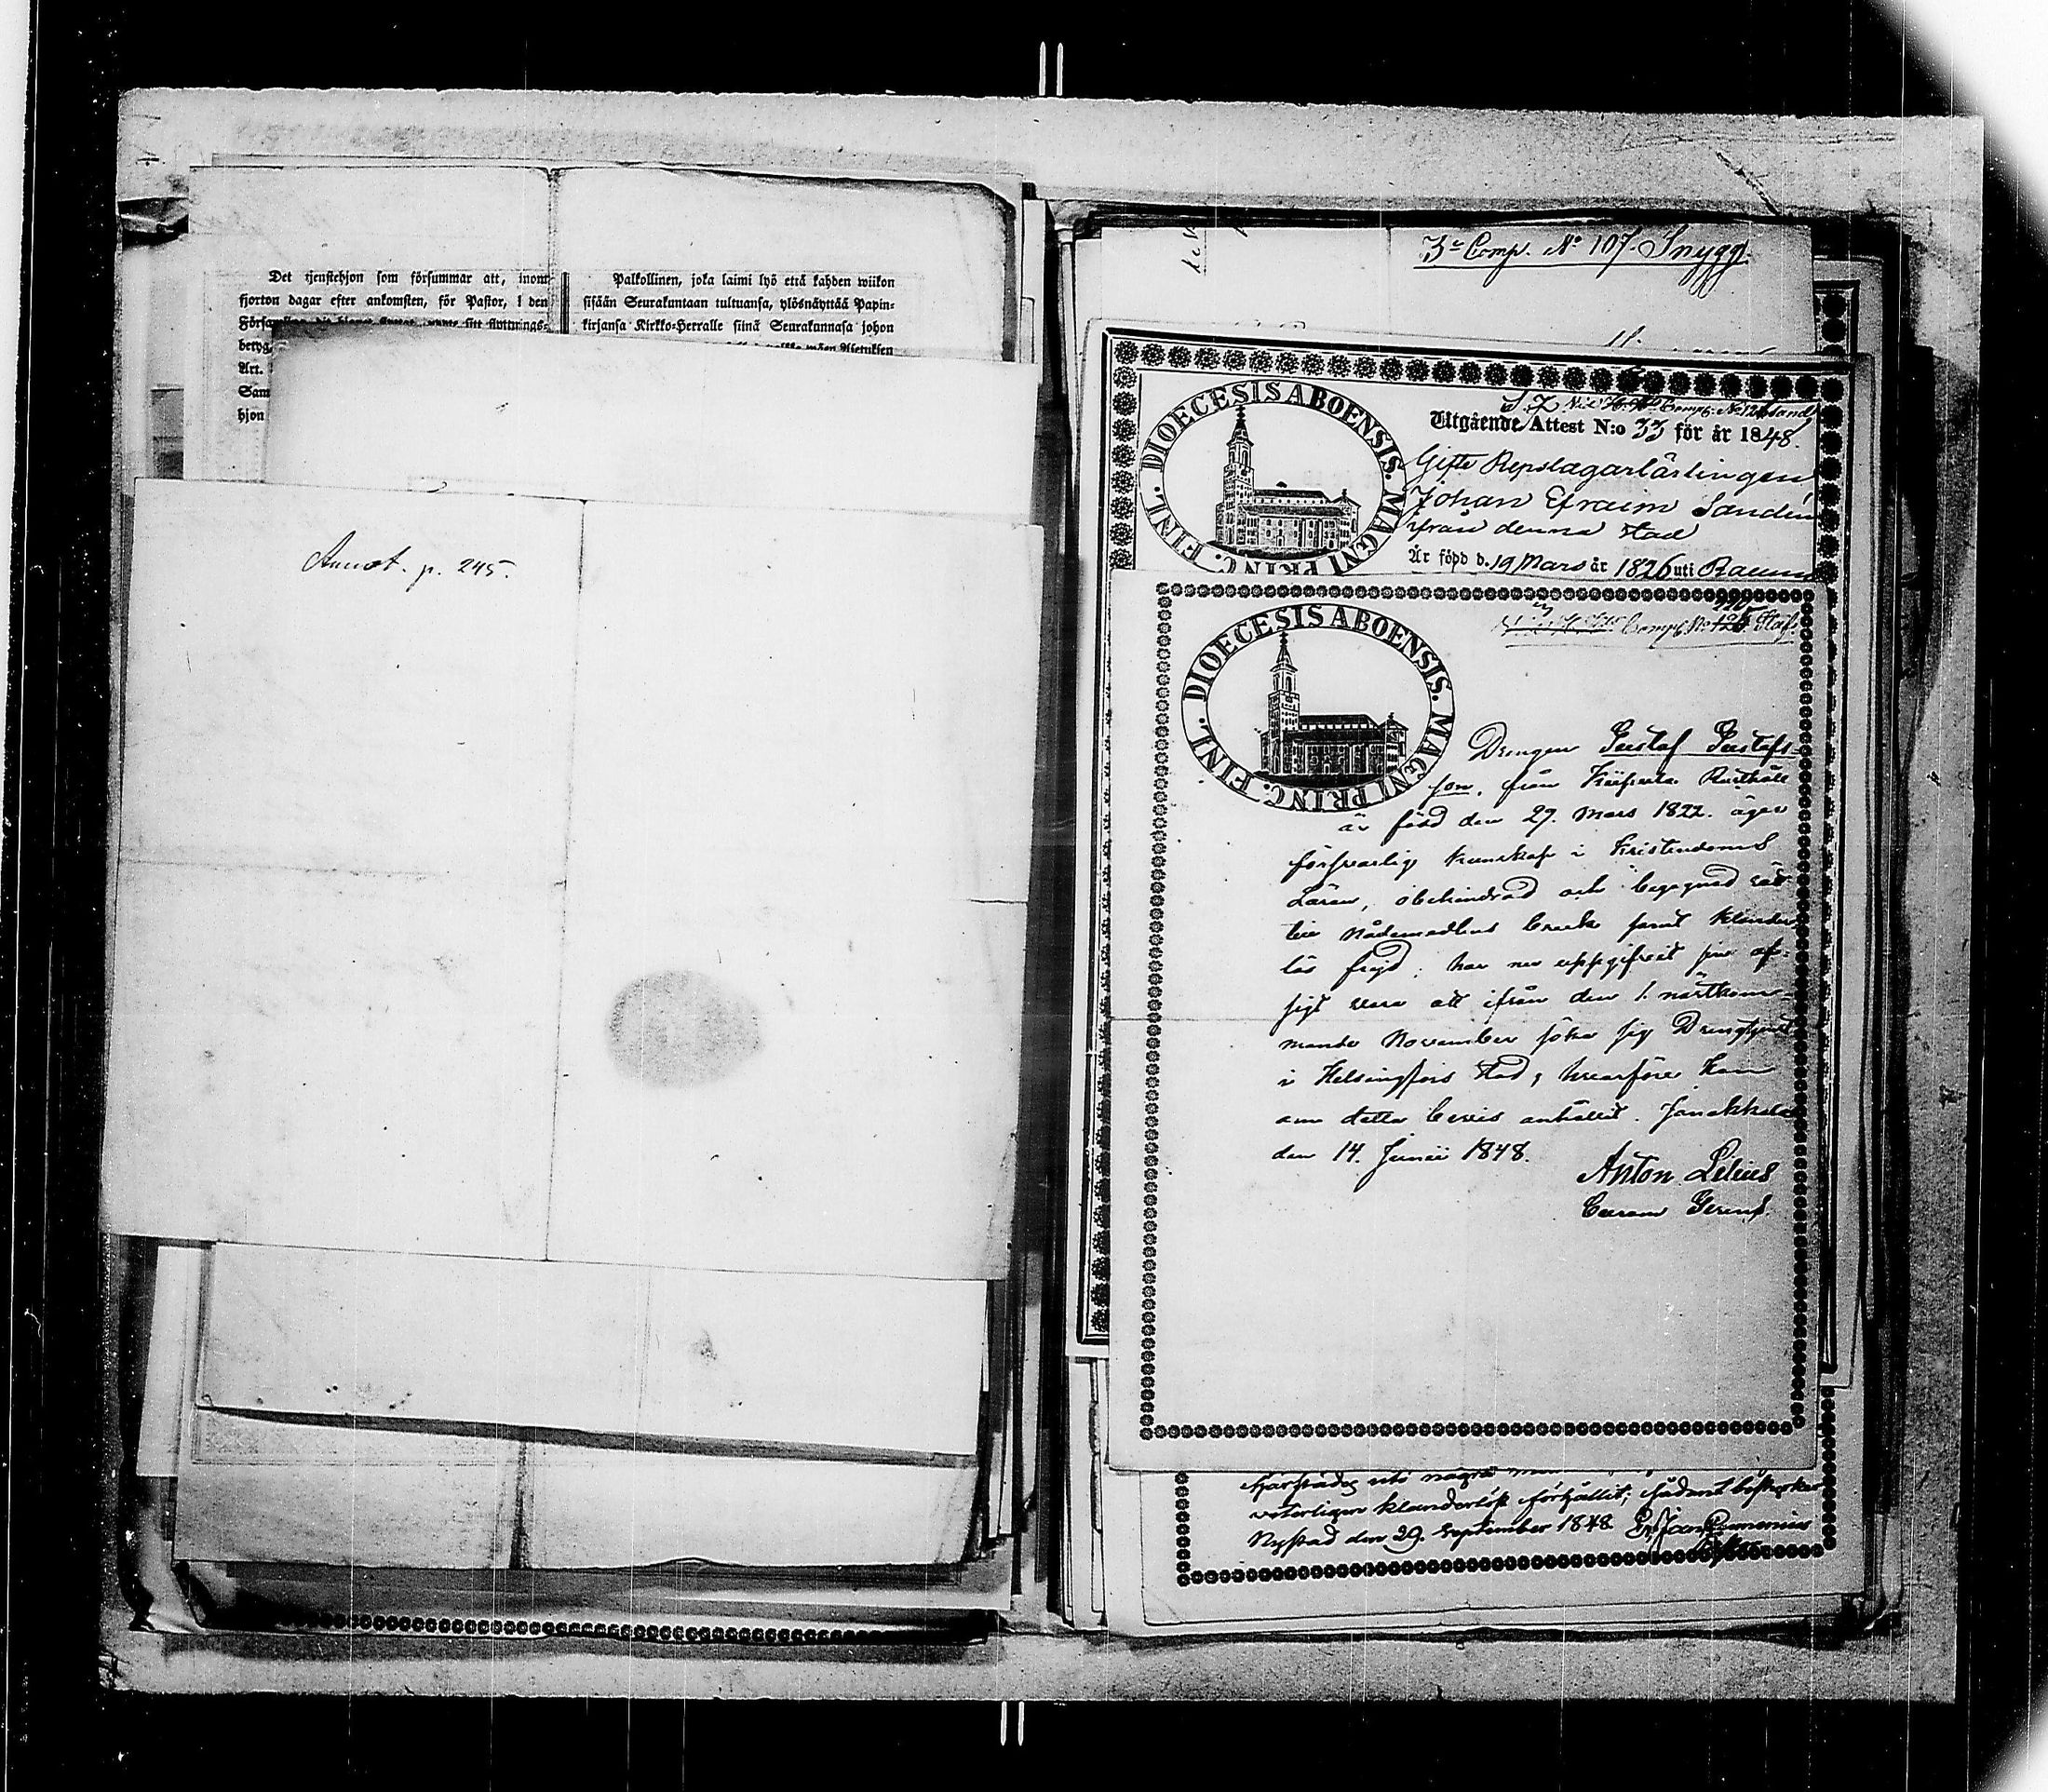 Det tjenstehjon som försummar att, inom
fjorton dagar efter ankomsten, för Pastor, i den
betyg
Art.
Sam
hjon
Palkollinen, joka laimi lyö että kahden wiikon
sisään Seurakuntaan tultuansa, ylösnäyttää Papin-
kirjansa Kirkko-Herralle siinä Seurakunnasa johon
Annot. p. 245.
3e Comp. No 107. Snygg.
Comp. No
Utgående Attest N:o 33 för år 1848.
Gifte Repslagarlärlingen
Johan Efraim Sandén
ifrån denna stad
Är född d. 19 Mars år 1826 uti Raumo
DIOECESIS ABOENSIS. MAGNI PRINC. FINL.
Comp. No
DIOECESIS ABOENSIS. MAGNI PRINC. FINL.
Drengen Gustaf Gustafs-
son, från Rusthåll
är född den 29. Mars 1822. äger
försvarlig kunskap i Kristendoms
Läran, obehindrad och begagnad rätt
till Nådemedlens bruk samt klander
lös frejd; har nu uppgifvit sin af-
sigt vara att ifrån den 1. nästkom-
mande November söka sig Drengtjenst
i Helsingfors stad, hvarföre han
om detta bevis anhållit. Janakkala
den 14. Junii 1848.
Anton Lilius
Curam Gerens.
veterligen klanderlöst förhållit;
Nystad den 29. September 1848